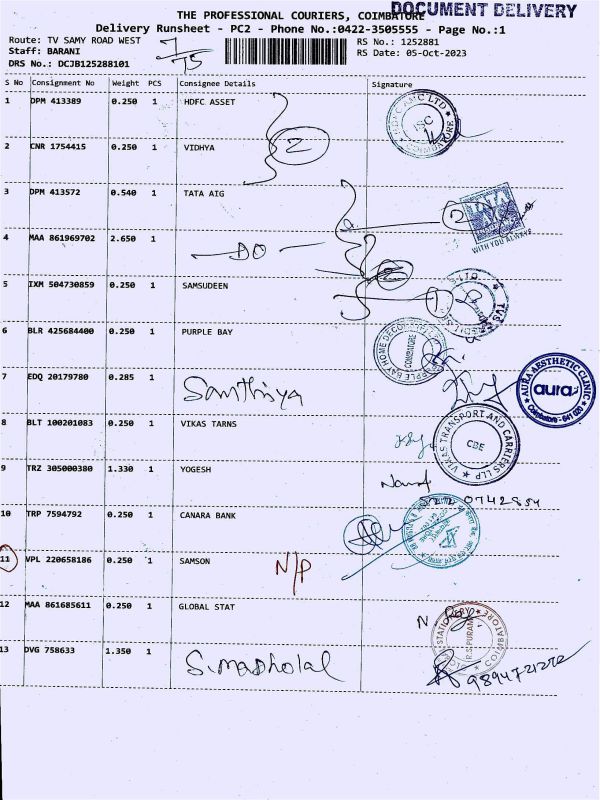 DOCUMENT DELIVERY
THE PROFESSIONAL COURIERS, COIMBATORE
Delivery Runsheet - PC2 - Phone No.:0422-3505555 - Page No.:1
Route: TV SAMY ROAD WEST
Staff: BARANI
DRS No.: DCJB125288101
7/75
RS No.: 1252881
RS Date: 05-Oct-2023
S No Consignment No Weight PCS Consignee Details Signature
1 DPM 413389 0.250 1 HDFC ASSET
2 CNR 1754415 0.250 1 VIDHYA 2
3 DPM 413572 0.540 1 TATA AIG 2
TATA
WITH YOU ALWAYS
4 MAA 861969702 2.650 1 DO
5 IXM 504730859 0.250 1 SAMSUDEEN
6 BLR 425684400 0.250 1 PURPLE BAY
COIMBATORE
7 EDQ 20179780 0.285 1 Santhiya
AURA AESTHETIC CLINIC
aura
Coimbatore - 641 020
8 BLT 100201083 0.250 1 VIKAS TARNS
VIKAS TRANSPORT AND CARRIERS LLP
CBE
9 TRZ 305000380 1.330 1 YOGESH
10 TRP 7594792 0.250 1 CANARA BANK
11 VPL 220658186 0.250 1 SAMSON N/P
12 MAA 861685611 0.250 1 GLOBAL STAT
STATIONERY
R.S.PURAM
COIMBATORE
13 DVG 758633 1.350 1 S.madholal